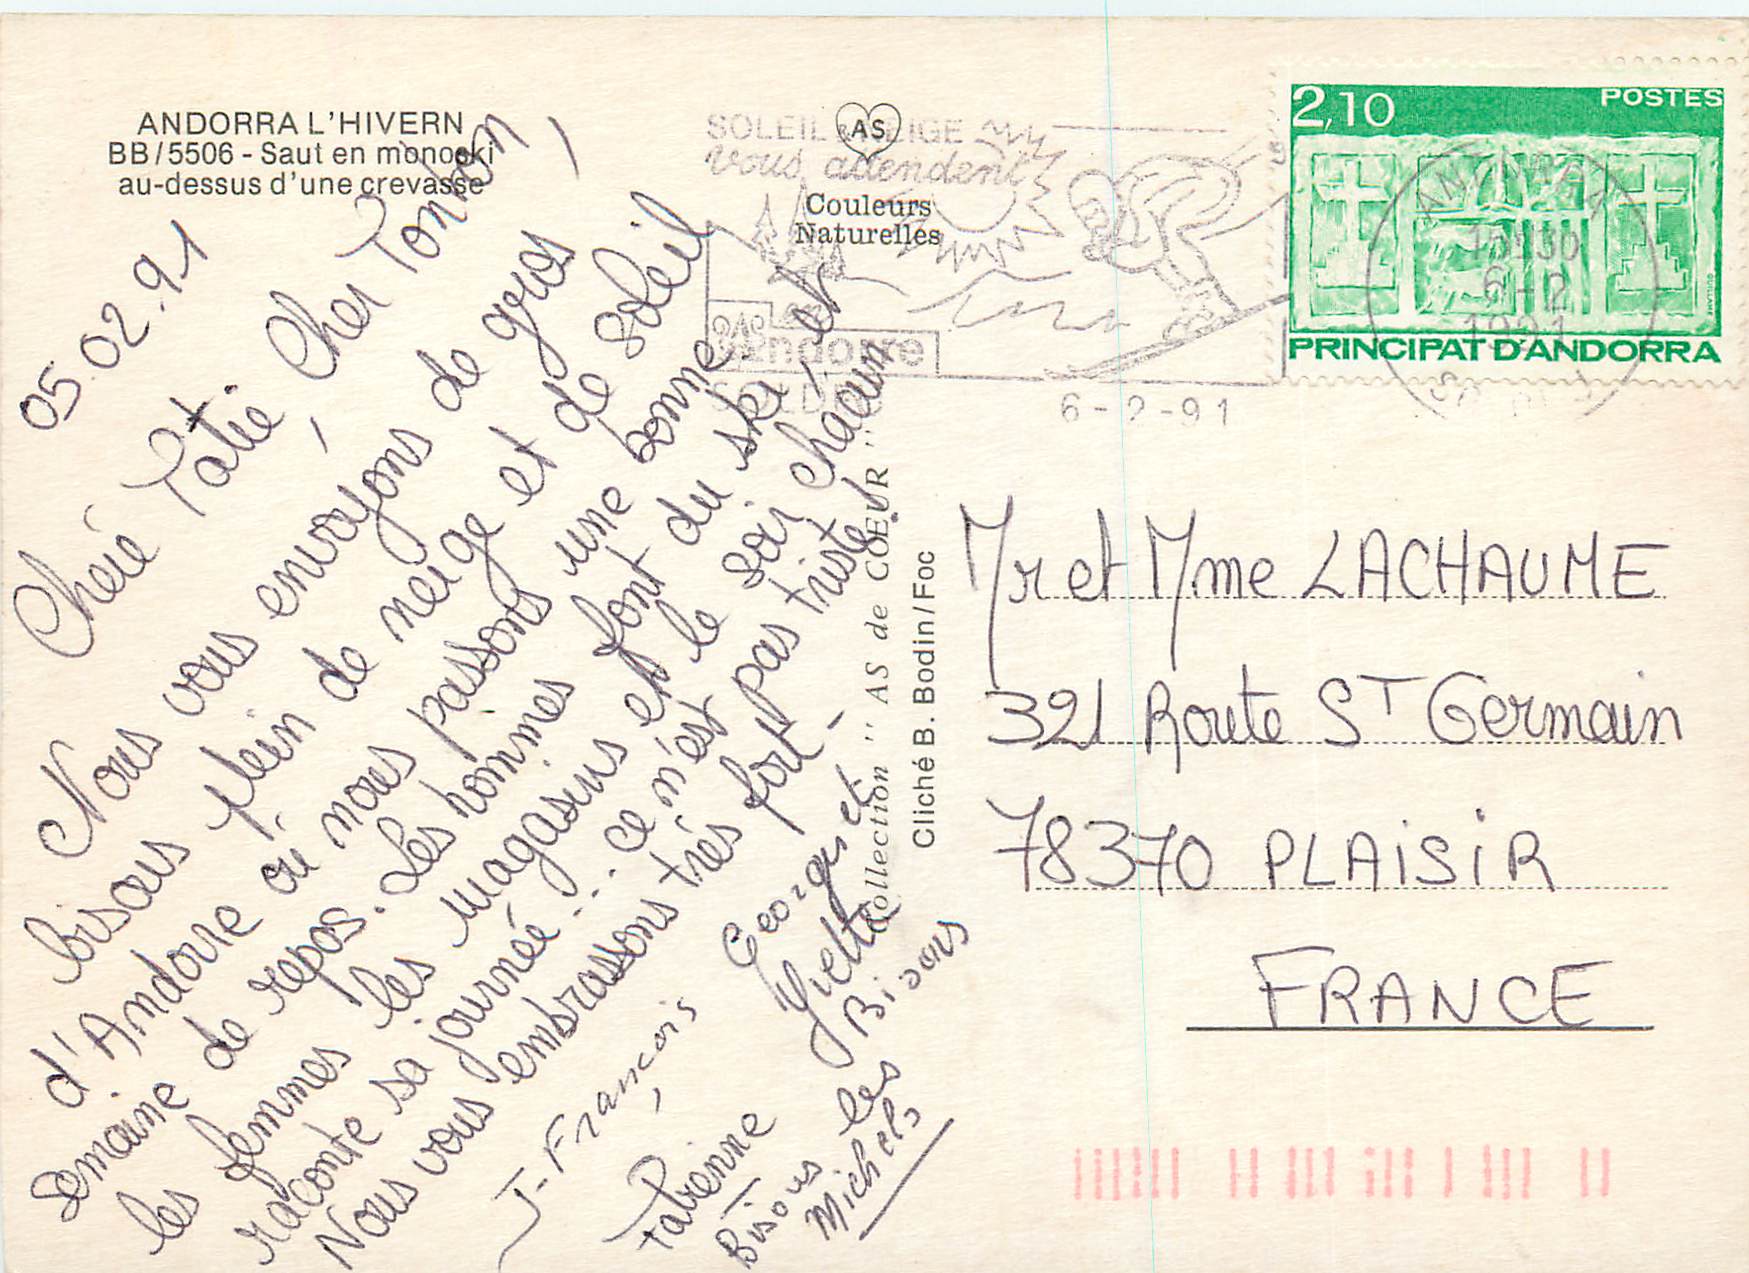 ANDORRA L'HIVERN
BB/5506 - Saut en monoski
au-dessus d'une crevasse
05.02.91
Chère Tatie, Cher Tonton,
Nous vous envoyons de gros
bisous plein de neige et de soleil
d'Andorre où nous passons une bonne
semaine de repos. Les hommes font du ski, et
les femmes les magasins et le soir chacun
raconte sa journée... ce n'est pas triste!
Nous vous embrassons très fort.
J-François
Fabienne
Georges et
Yvette
Bisous
Bisous les
Michels
AS
Couleurs
Naturelles
Collection " AS de CŒUR "
Cliché B. Bodin/Foc
SOLEIL & NEIGE
vous attendent
en
Andorre
SOLDEU
6-2-91
2,10
POSTES
PRINCIPAT D'ANDORRA
ANDORRA
6-2
1991
Mr et Mme LACHAUME
321 Route ST Germain
78370 PLAiSiR
FRANCE